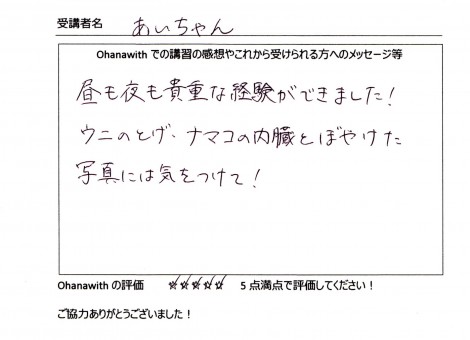 受講者名 あいちゃん
Ohanawith での講習の感想やこれから受けられる方へのメッセージ等
昼も夜も貴重な経験ができました!
ウニのとげ、ナマコの内臓とぼやけた
写真には気をつけて!
Ohanawith の評価 ☆☆☆☆☆ 5 点満点で評価してください!
ご協力ありがとうございました!